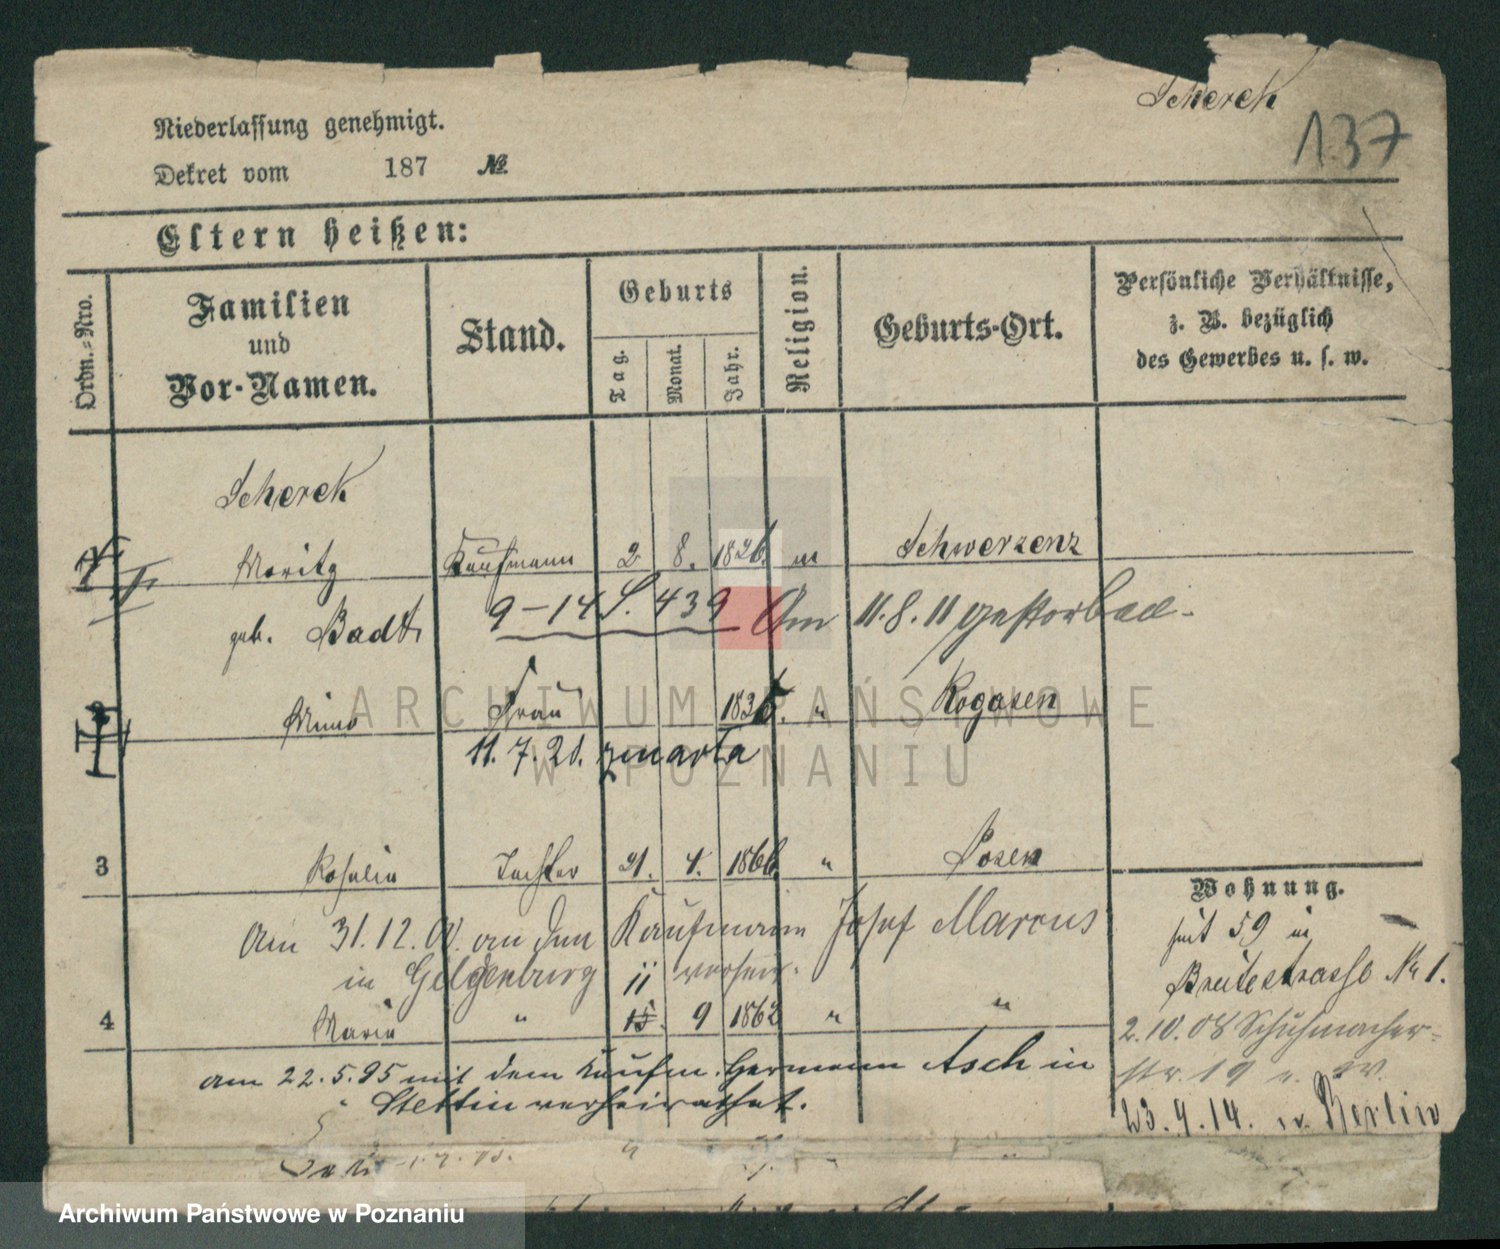 Scherek
137
Niederlassung genehmigt.
Dekret vom 187 №
Eltern heißen:
Ordn.-Nro.
Familien
und
Vor-Namen.
Stand.
Geburts
Tag.
Monat.
Jahr.
Religion.
Geburts-Ort.
Persönliche Verhältnisse,
z. B. bezüglich
des Gewerbes u. s. w.
Scherek
Moritz Kaufmann 2 8. 1826. m Schwersenz
9-14 S. 439 Am 11.8.11 gestorben.
geb. Badt
Frau 183 " Rogasen
11.7.21. zmarła
3 Rosalie Tochter 21. 4. 1866 " Posen
Am 31.12. an den Kaufmann Josef Marcus
in Gilgenburg
4 Maria " 15. 9 1862 " "
am 22.5.95 mit dem Kaufm. Hermann Asch in
Stettin verheirathet.
Wohnung.
seit 59 in
Breitestrasse No 1.
2.10.08 Schuhmacher-
str. 19
23.4.14. Berlin
ARCHIWUM PAŃSTWOWE
W POZNANIU
Archiwum Państwowe w Poznaniu